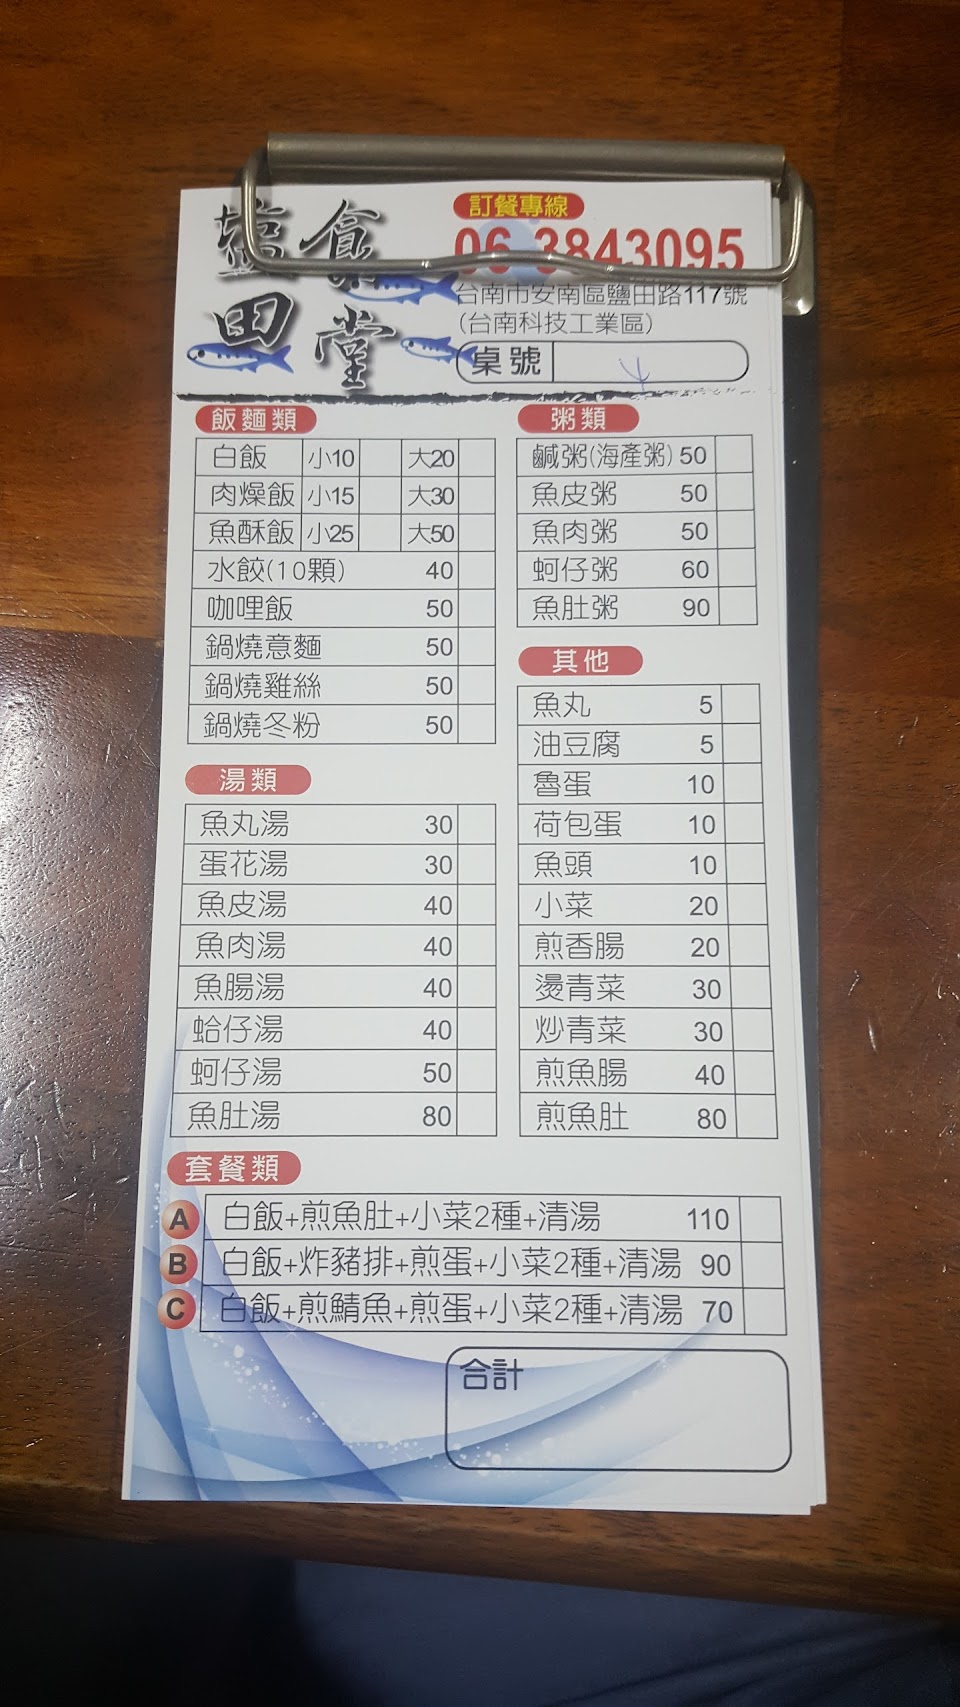 塩田食堂
訂餐專線
06-3843095
台南市安南區鹽田路117號
(台南科技工業區)
桌號
飯麵類
白飯 小10 大20
肉燥飯 小15 大30
魚酥飯 小25 大50
水餃(10顆) 40
咖哩飯 50
鍋燒意麵 50
鍋燒雞絲 50
鍋燒冬粉 50
湯類
魚丸湯 30
蛋花湯 30
魚皮湯 40
魚肉湯 40
魚腸湯 40
蛤仔湯 40
蚵仔湯 50
魚肚湯 80
粥類
鹹粥(海產粥) 50
魚皮粥 50
魚肉粥 50
蚵仔粥 60
魚肚粥 90
其他
魚丸 5
油豆腐 5
魯蛋 10
荷包蛋 10
魚頭 10
小菜 20
煎香腸 20
燙青菜 30
炒青菜 30
煎魚腸 40
煎魚肚 80
套餐類
A 白飯+煎魚肚+小菜2種+清湯 110
B 白飯+炸豬排+煎蛋+小菜2種+清湯 90
C 白飯+煎鯖魚+煎蛋+小菜2種+清湯 70
合計